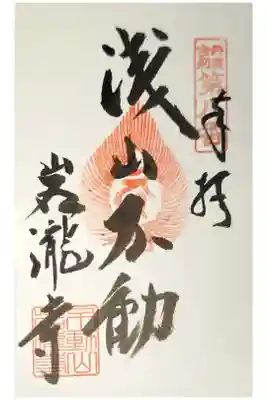 奉拝
浅山不動
岩瀧寺